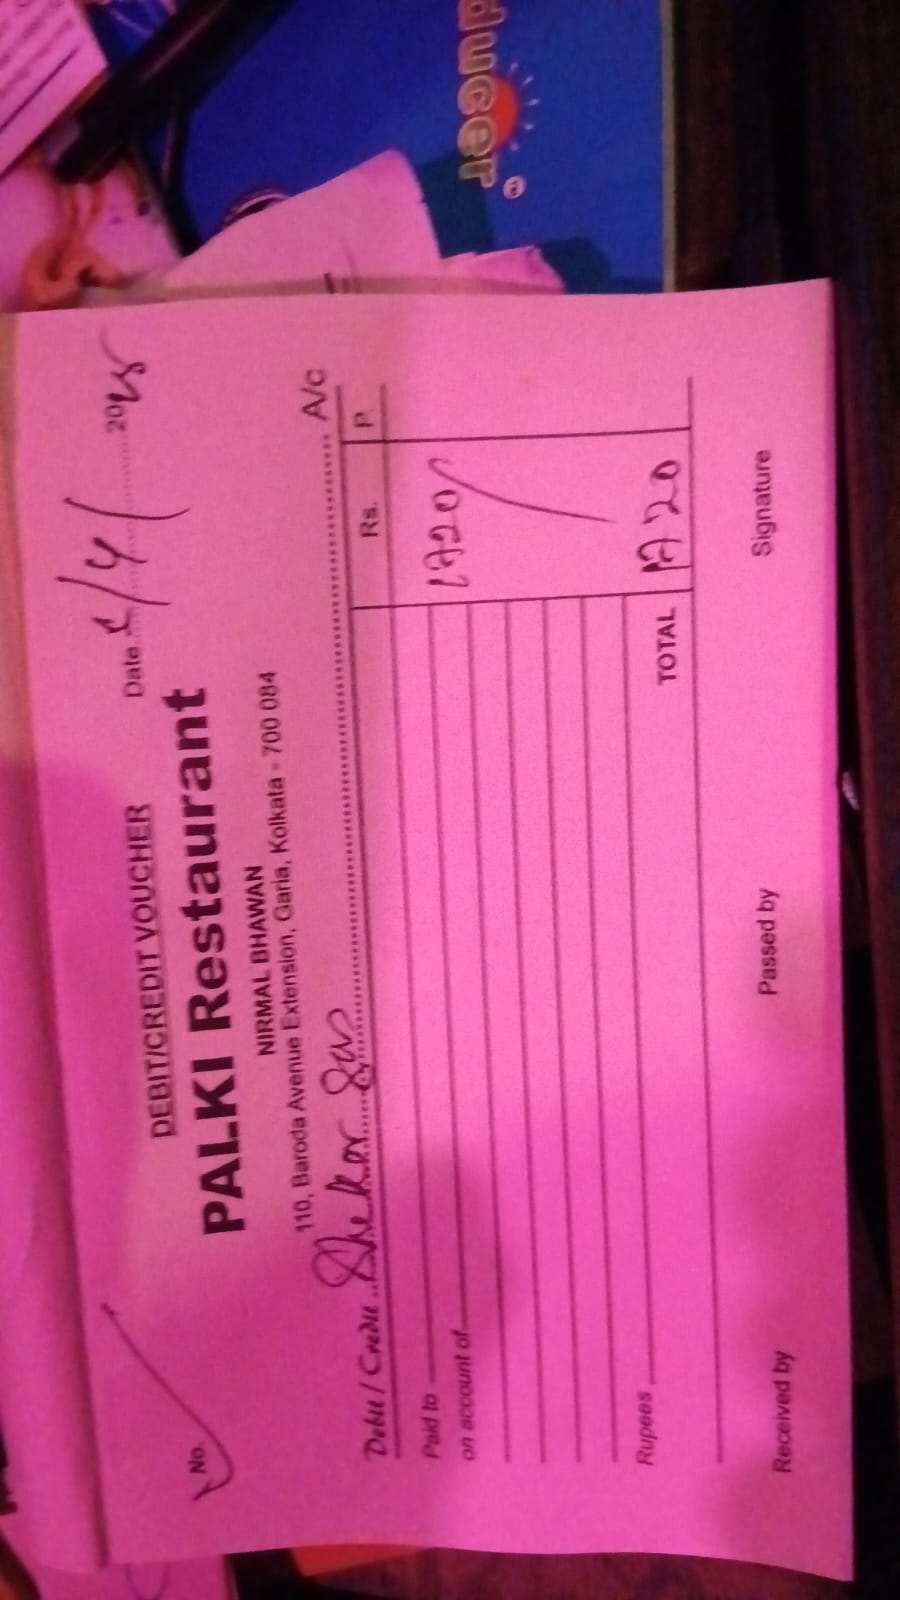 ducer
DEBIT/CREDIT VOUCHER
No.
Date 2025
PALKI Restaurant
NIRMAL BHAWAN
110, Baroda Avenue Extension, Garia, Kolkata - 700 084
Debit / Credit Shekar A/c
Rs. P.
Paid to 1720/
on account of
Rupees TOTAL 1720
Received by Passed by Signature